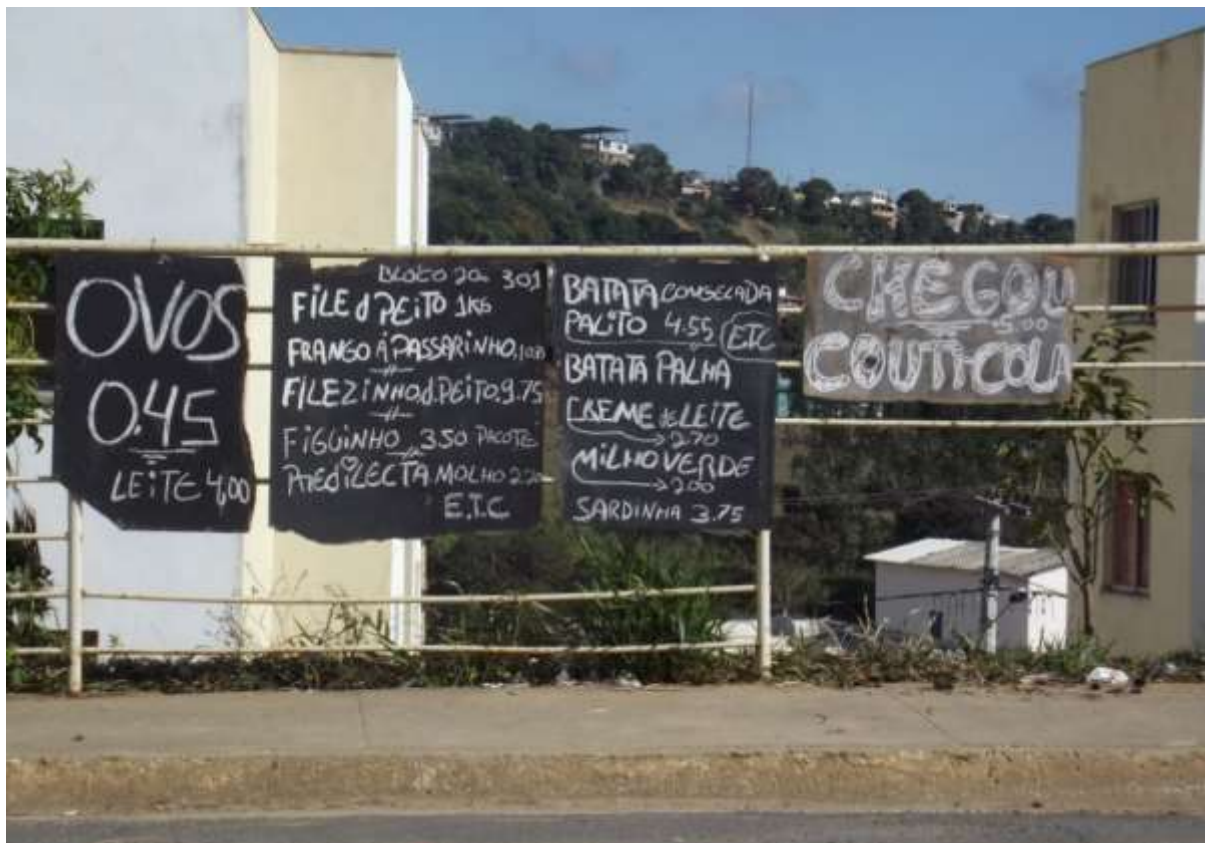 OVOS
0.45
LEITE 4,00
BLOCO 20. 301
FILE d PEITO 1KG
FRANGO Á PASSARINHO.
FILEZINHO.d.PEITO.9.75
FIGUINHO 3.50 PACOTE
PREDILECTA MOLHO 2.20
E.T.C
BATATA CONGELADA
PALITO 4.55 ETC
BATATA PALHA
CREME de LEITE
2.70
MILHO VERDE
2.00
SARDINHA 3.75
CHEGOU
5.00
COUTI-COLA